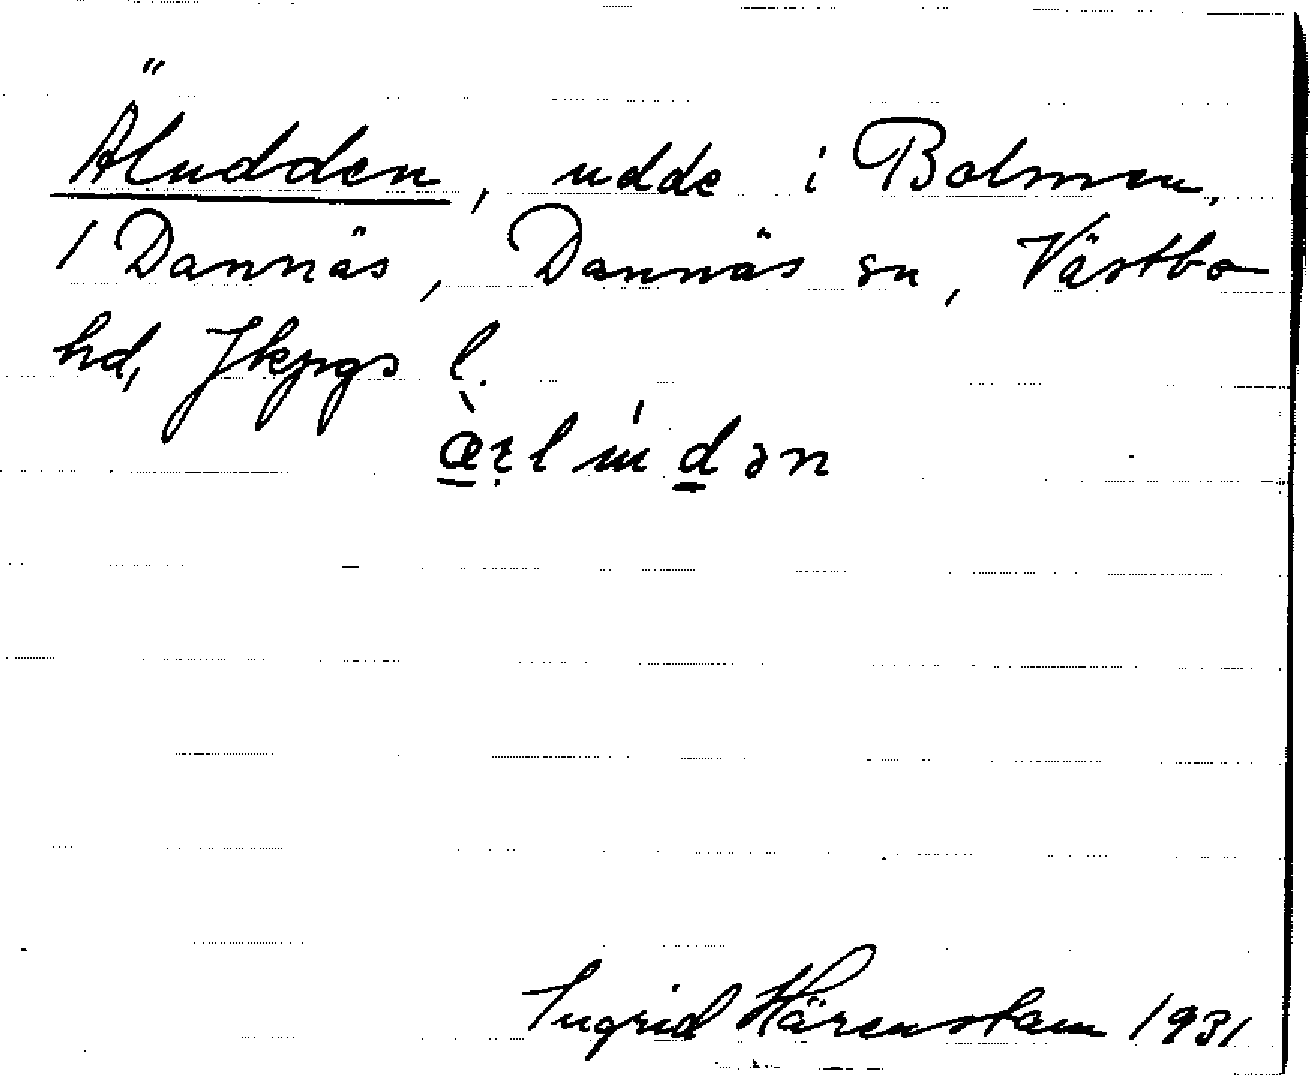 Äludden, udde i Bolmen,
/ Dannäs, Dannäs sn, Västbo
hd, Jkpgs l.
Ingrid Härenstam 1931